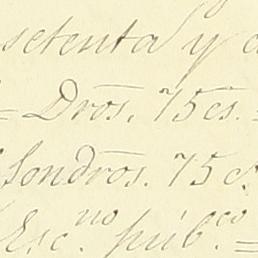 setenta y c
= Dros. 75cs. =
Sondros. 75c.
Esc.no púb.co =